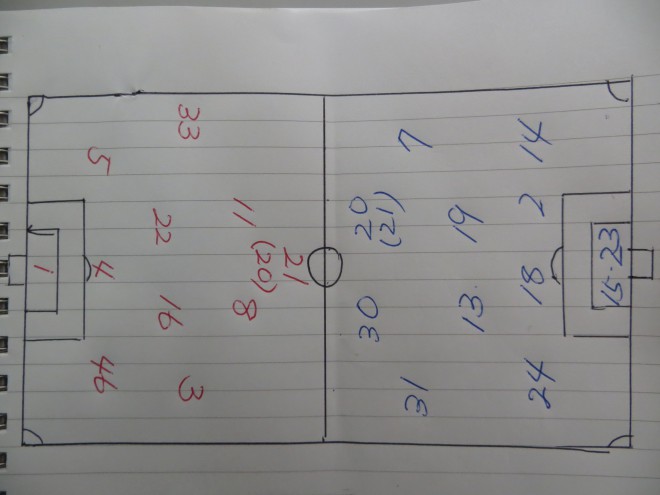 33
5
11
22
21
(20)
1
4
8
16
46
3
7
14
20
(21)
19
2
15・23
18
30
13
31
24